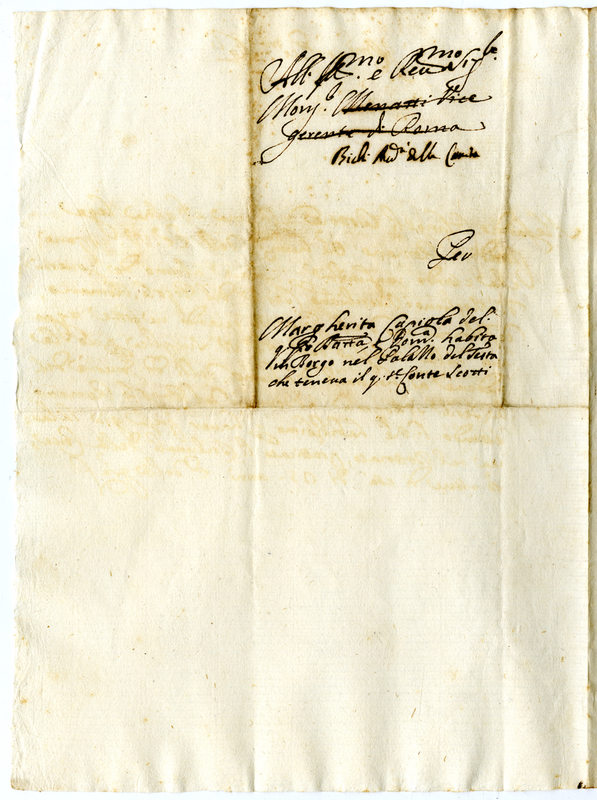 All' Ill.mo e Reu.mo Sig.re
Mons.r Menatti Vice
gerente di Roma
Bichi Aud.r della Cam.ra
Per
Margherita Capiola del
q. Bart.a, Rom.a habita
in Borgo nel Palazzo del
che teneua il q. S.r Conte Scotti